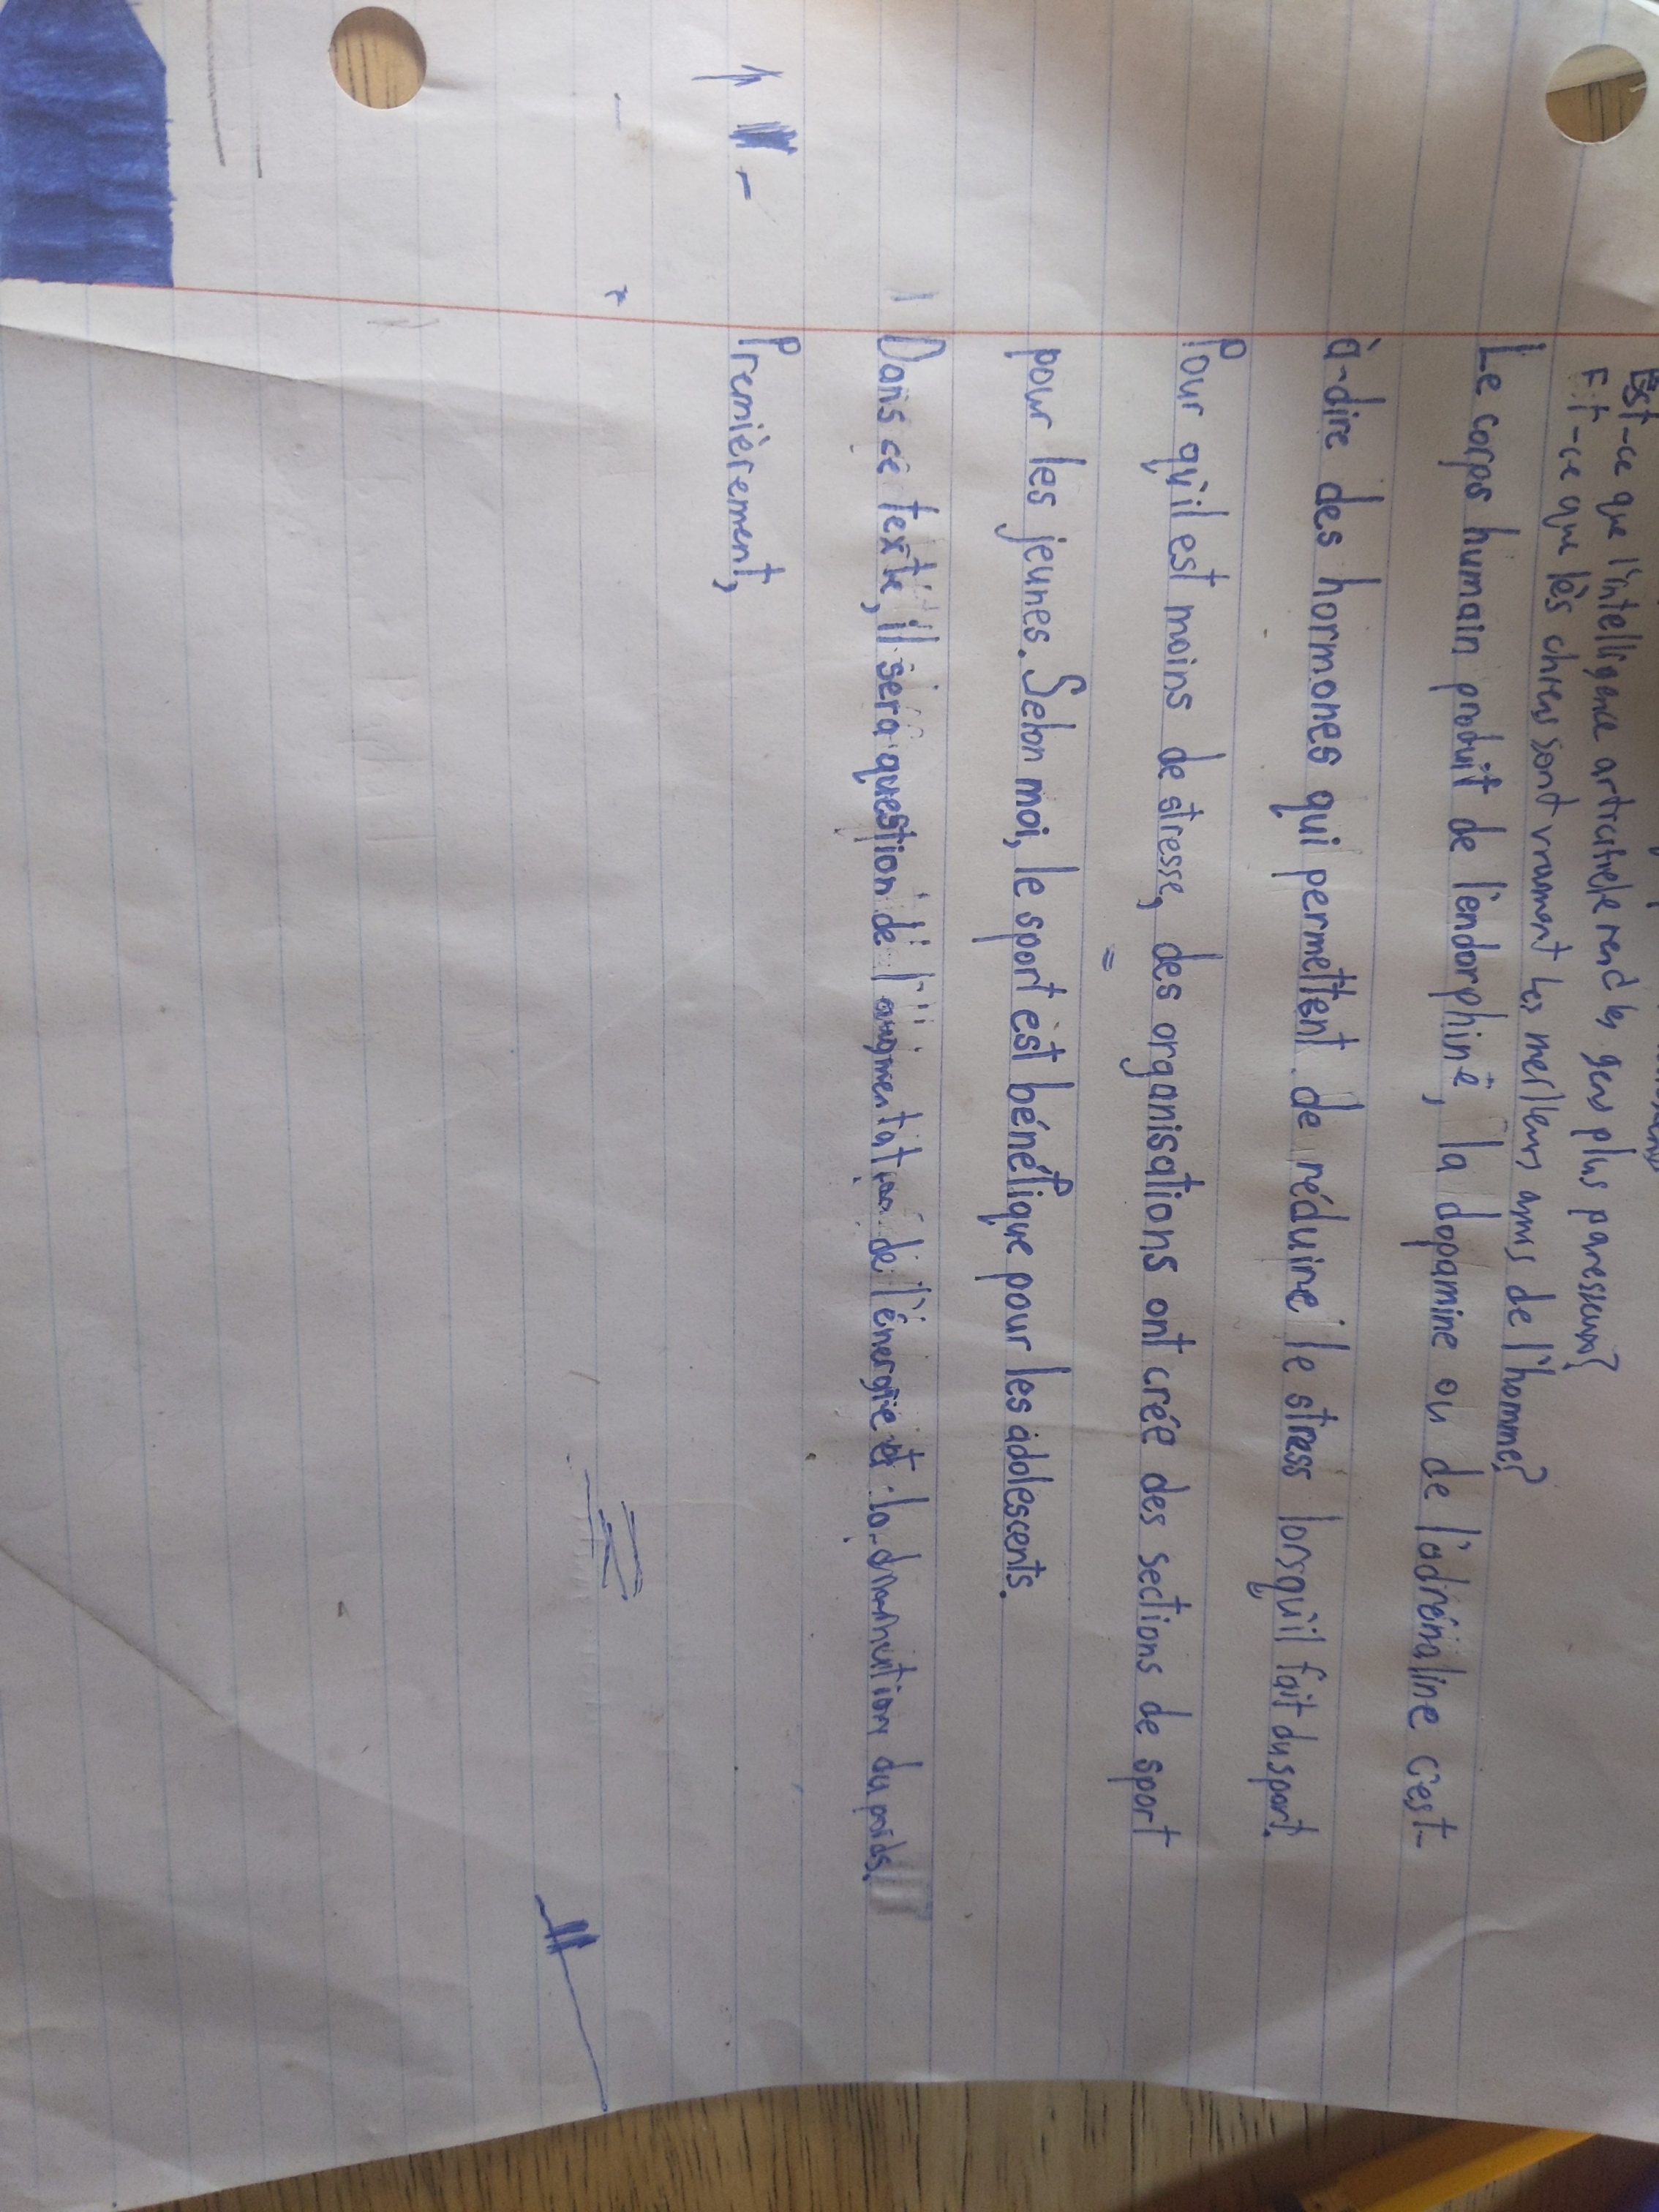 Est-ce que l'intelligence artificielle rend les gens plus paresseux?
Est-ce que les chiens sont vraiment les meilleurs amis de l'homme?
Le corps humain produit de l'endorphine, la dopamine ou de l'adrénaline c'est-
à-dire des hormones qui permettent de réduire le stress lorsqu'il fait du sport.
Pour qu'il est moins de stresse, des organisations ont crée des sections de sport
pour les jeunes. Selon moi, le sport est bénéfique pour les adolescents.
Dans ce texte, il sera question de l'augmentation de l'énergie et la diminution du poids.
Premièrement,